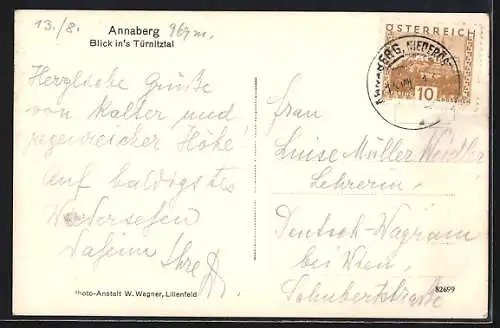 13./8.
Annaberg 967m.
Blick in's Türnitztal
Herzliche Grüße
von kalter und
regenreicher Höhe!
Auf baldigstes
Wiedersehen
Daheim Ihre
Photo-Anstalt W. Wagner, Lilienfeld
ÖSTERREICH
10
ANNABERG, NIEDERÖST
Frau
Luise Müller
Lehrerin,
Deutsch-Wagram
bei Wien,
Schubertstraße
82699